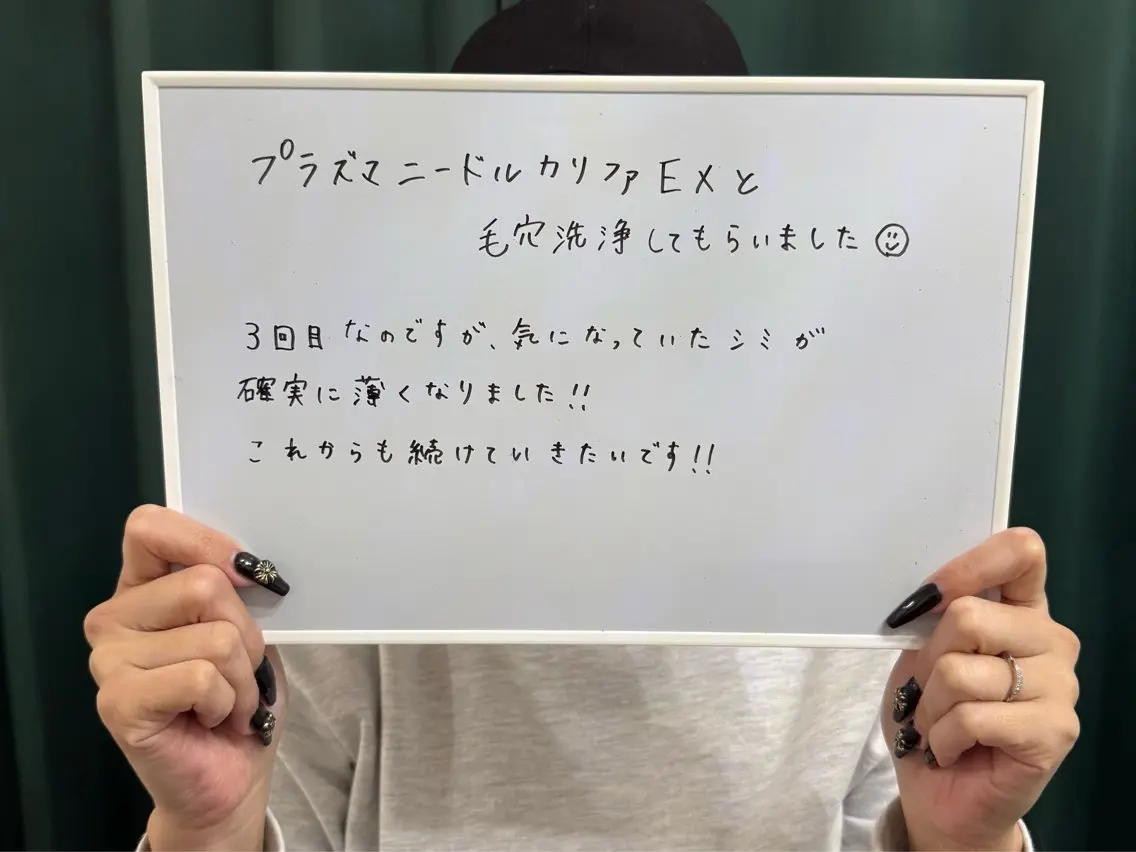 プラズマニードルカリファEXと
毛穴洗浄してもらいました☺
3回目なのですが、気になっていたシミが
確実に薄くなりました!!
これからも続けていきたいです!!